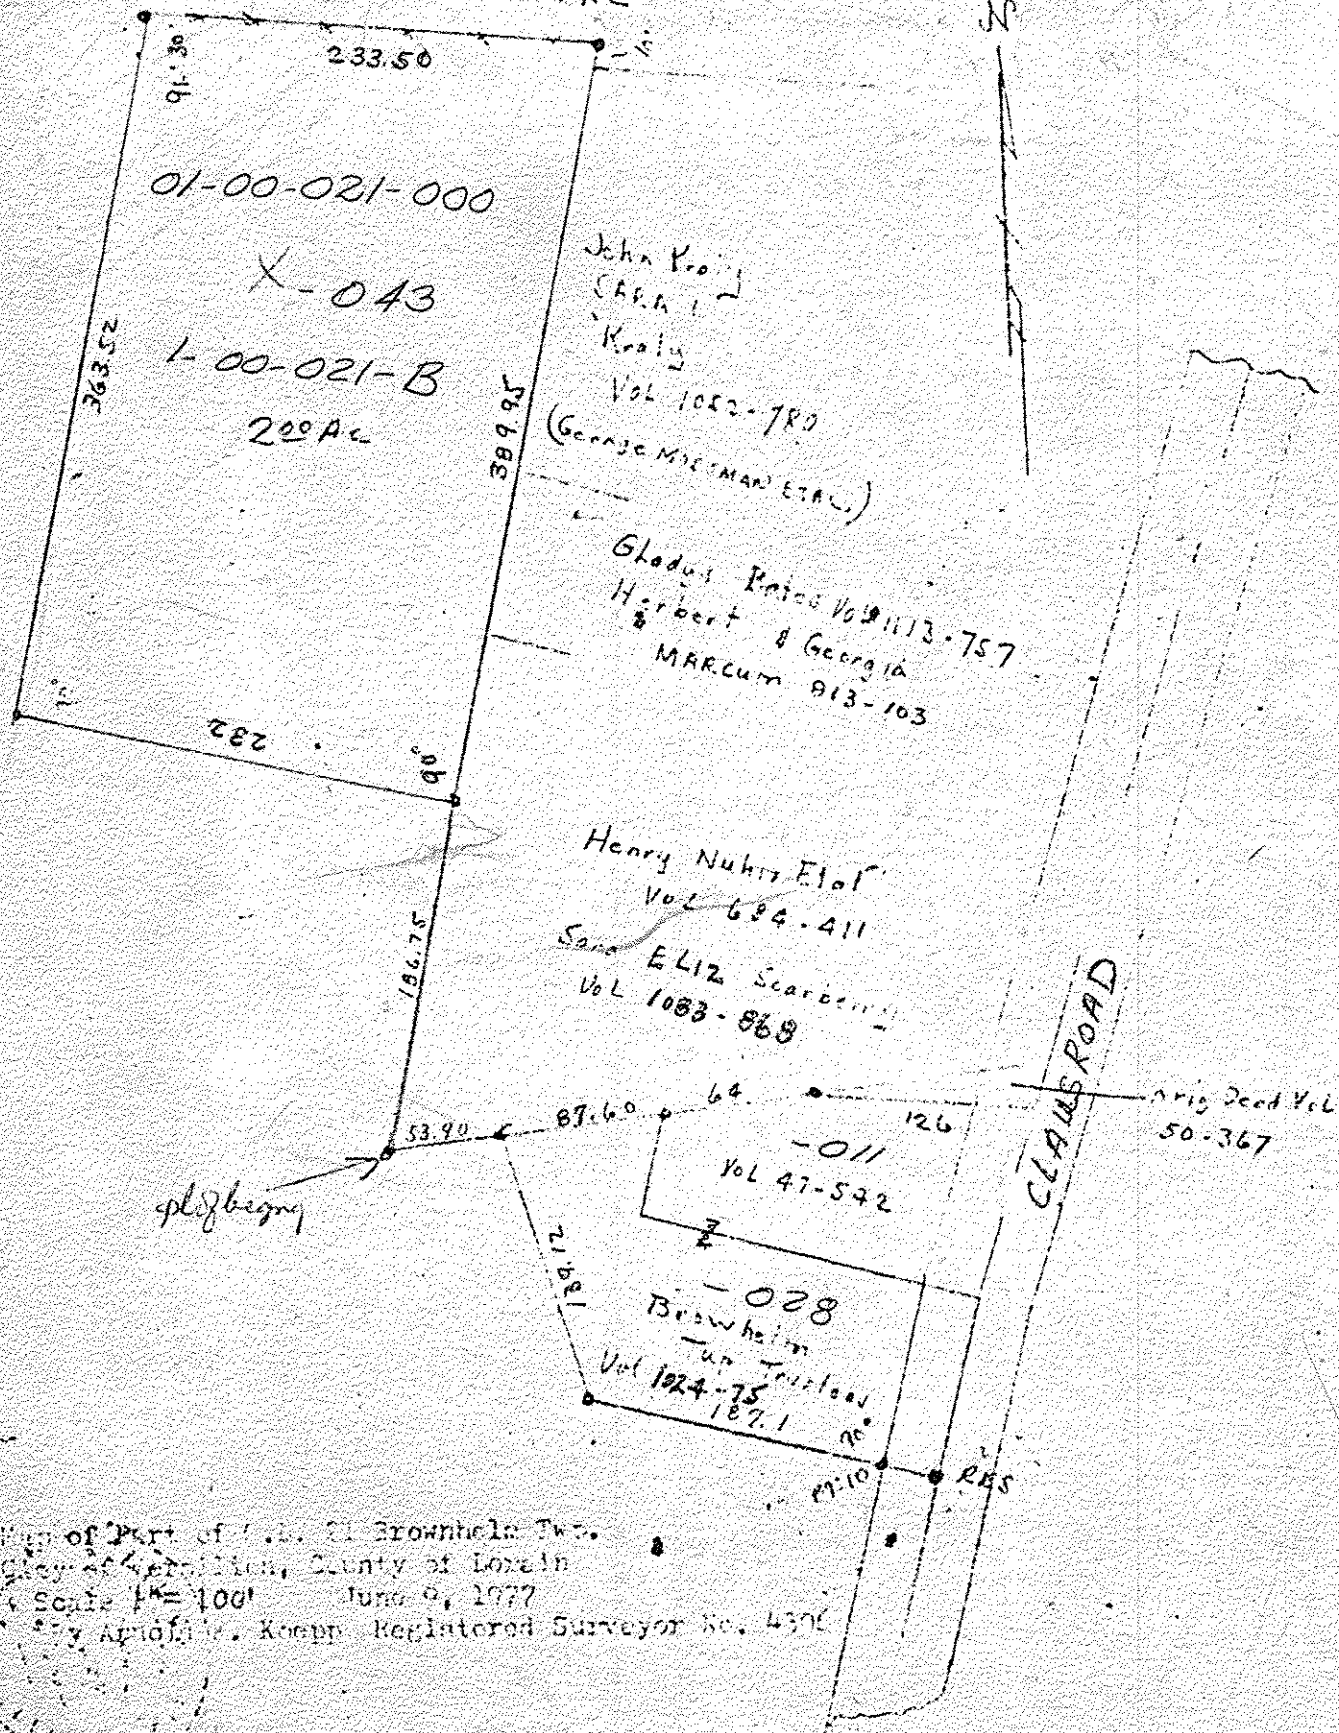 N
233.50
91° 30'
01-00-021-000
X-043
1-00-021-B
2 00 Ac
363.52
389.95
John
Kraly
VOL 1052-780
(George ETAL)
Gladys Bates Vol 1113-757
Herbert & Georgia
MARCUM 813-103
232
90°
Henry Nuhn Etal
VOL 694-411
ELIZ Scarberry
VOL 1083-868
186.75
CLAUS ROAD
53.90
87.60
64
126
orig Deed Vol
50-367
-011
VOL 47-542
pl of begng
139.12
-028
Brownhelm
Twp Trustees
Vol 1024-75
187.1
90°
87°10
RES
Map of Part of O.L. 21 Brownhelm Twp.
City of Vermilion, County of Lorain
Scale 1"= 100' June 9, 1977
By Koepp Registered Surveyor No.